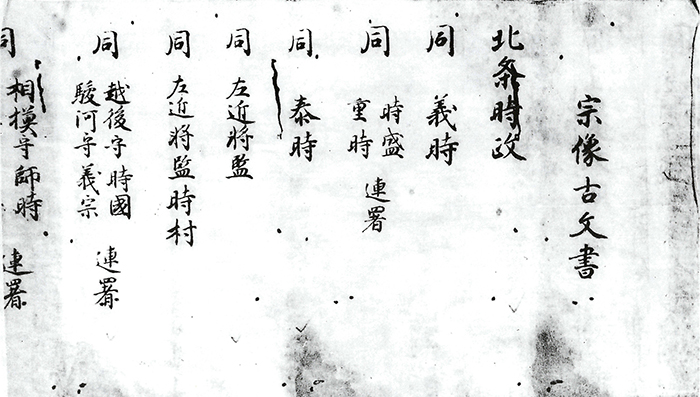 宗像古文書
北条時政
同 義時
同 時盛
重時 連署
同 泰時
同 左近将監
同 左近将監時村
同 越後守時國
駿河守義宗 連署
同 相摸守師時 連署